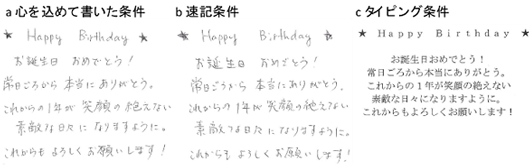 a 心を込めて書いた条件
★ Happy Birthday ★
お誕生日 おめでとう！
常日ごろから 本当に ありがとう。
これからの1年が 笑顔の絶えない
素敵な日々に なりますように。
これからも よろしく お願いします！
b 速記条件
★ Happy Birthday ★
お誕生日 おめでとう！
常日ごろから 本当に ありがとう。
これからの1年が 笑顔の絶えない
素敵な日々に なりますように。
これからも よろしく お願いします！
c タイピング条件
★ Happy Birthday ★
お誕生日おめでとう！
常日ごろから本当にありがとう。
これからの１年が笑顔の絶えない
素敵な日々になりますように。
これからもよろしくお願いします！